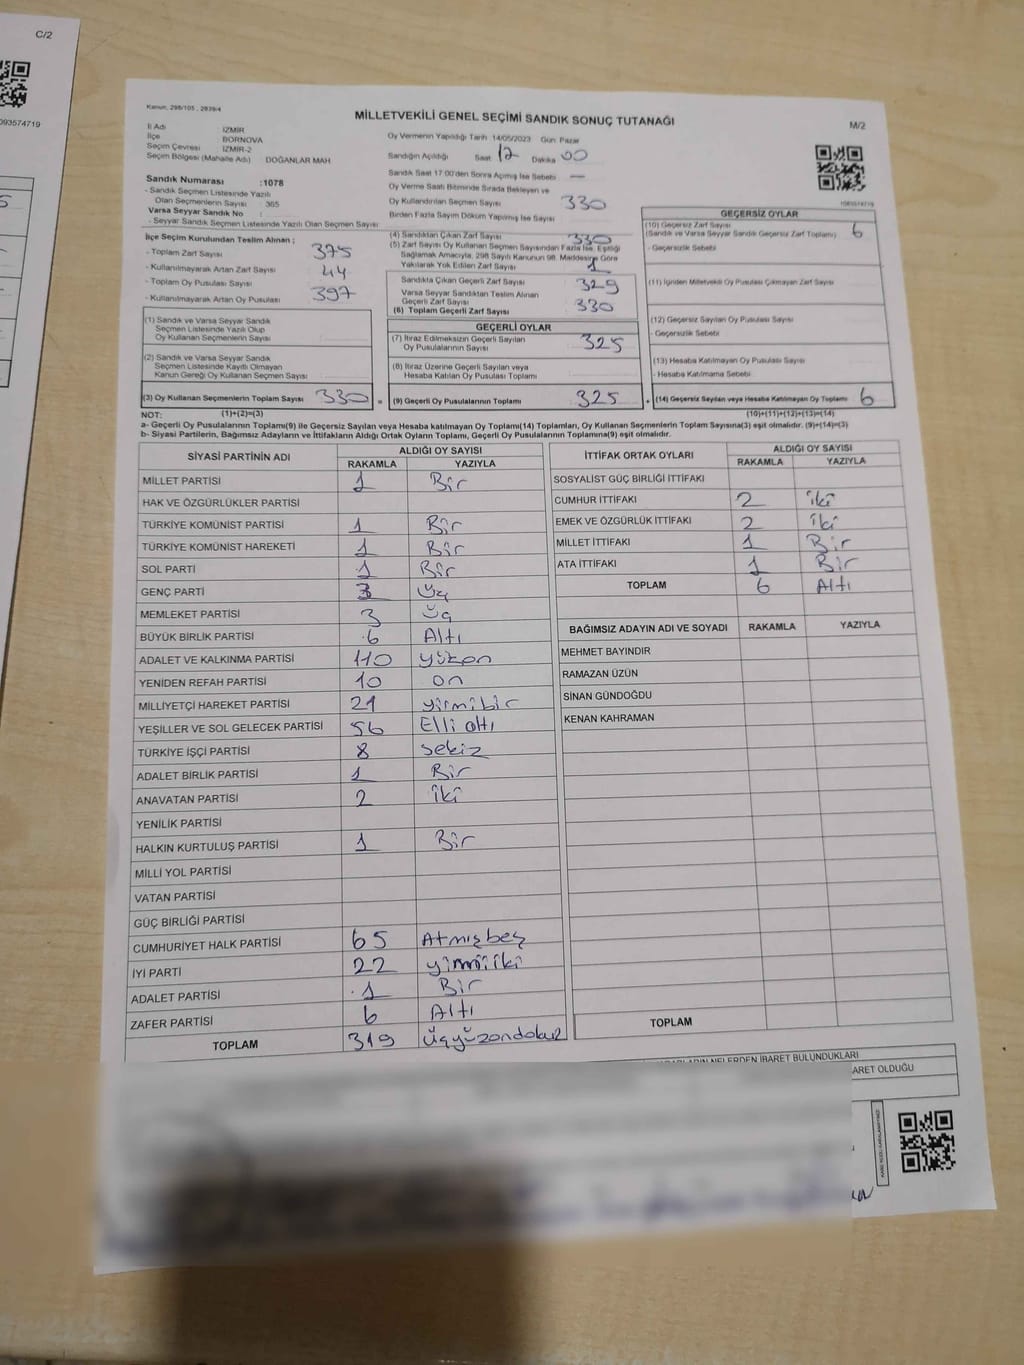 C/2
093574719
5
Kanun, 298/105 , 2839/4
MİLLETVEKİLİ GENEL SEÇİMİ SANDIK SONUÇ TUTANAĞI
M/2
İl Adı İZMİR
İlçe BORNOVA
Seçim Çevresi İZMİR-2
Seçim Bölgesi (Mahalle Adı) DOĞANLAR MAH
Oy Vermenin Yapıldığı Tarih 14/05/2023 Gün: Pazar
Sandığın Açıldığı Saat 17 Dakika 00
Sandık Saat 17:00'den Sonra Açılmış İse Sebebi —
Oy Verme Saati Bitiminde Sırada Bekleyen ve
Oy Kullandırılan Seçmen Sayısı 330
Birden Fazla Sayım Döküm Yapılmış İse Sayısı
Sandık Numarası :1078
- Sandık Seçmen Listesinde Yazılı
Olan Seçmenlerin Sayısı : 365
Varsa Seyyar Sandık No :
- Seyyar Sandık Seçmen Listesinde Yazılı Olan Seçmen Sayısı:
İlçe Seçim Kurulundan Teslim Alınan ;
- Toplam Zarf Sayısı 375
- Kullanılmayarak Artan Zarf Sayısı 44
- Toplam Oy Pusulası Sayısı 397
- Kullanılmayarak Artan Oy Pusulası
(1) Sandık ve Varsa Seyyar Sandık
Seçmen Listesinde Yazılı Olup
Oy Kullanan Seçmenlerin Sayısı
(2) Sandık ve Varsa Seyyar Sandık
Seçmen Listesinde Kayıtlı Olmayan
Kanun Gereği Oy Kullanan Seçmen Sayısı
(3) Oy Kullanan Seçmenlerin Toplam Sayısı 330 =
(4) Sandıktan Çıkan Zarf Sayısı 330
(5) Zarf Sayısı Oy Kullanan Seçmen Sayısından Fazla İse, Eşitliği
Sağlamak Amacıyla, 298 Sayılı Kanunun 98. Maddesine Göre
Yakılarak Yok Edilen Zarf Sayısı 1
Sandıkta Çıkan Geçerli Zarf Sayısı 329
Varsa Seyyar Sandıktan Teslim Alınan
Geçerli Zarf Sayısı 330
(6) Toplam Geçerli Zarf Sayısı
GEÇERLİ OYLAR
(7) İtiraz Edilmeksizin Geçerli Sayılan
Oy Pusulalarının Sayısı 325
(8) İtiraz Üzerine Geçerli Sayılan veya
Hesaba Katılan Oy Pusulası Toplamı
(9) Geçerli Oy Pusulalarının Toplamı 325 +
GEÇERSİZ OYLAR
(10) Geçersiz Zarf Sayısı
(Sandık ve Varsa Seyyar Sandık Geçersiz Zarf Toplamı) 6
- Geçersizlik Sebebi
(11) İçinden Milletvekili Oy Pusulası Çıkmayan Zarf Sayısı
(12) Geçersiz Sayılan Oy Pusulası Sayısı
- Geçersizlik Sebebi
(13) Hesaba Katılmayan Oy Pusulası Sayısı
- Hesaba Katılmama Sebebi
(14) Geçersiz Sayılan veya Hesaba Katılmayan Oy Toplamı 6
NOT: (1)+(2)=(3) (10)+(11)+(12)+(13)=(14)
a- Geçerli Oy Pusulalarının Toplamı(9) ile Geçersiz Sayılan veya Hesaba katılmayan Oy Toplamı(14) Toplamları, Oy Kullanan Seçmenlerin Toplam Sayısına(3) eşit olmalıdır. (9)+(14)=(3)
b- Siyasi Partilerin, Bağımsız Adayların ve İttifakların Aldığı Ortak Oyların Toplamı, Geçerli Oy Pusulalarının Toplamına(9) eşit olmalıdır.
SİYASİ PARTİNİN ADI ALDIĞI OY SAYISI
RAKAMLA YAZIYLA
MİLLET PARTİSİ 1 Bir
HAK VE ÖZGÜRLÜKLER PARTİSİ
TÜRKİYE KOMÜNİST PARTİSİ 1 Bir
TÜRKİYE KOMÜNİST HAREKETİ 1 Bir
SOL PARTİ 1 Bir
GENÇ PARTİ 3 Üç
MEMLEKET PARTİSİ 3 Üç
BÜYÜK BİRLİK PARTİSİ 6 Altı
ADALET VE KALKINMA PARTİSİ 110 yüzon
YENİDEN REFAH PARTİSİ 10 on
MİLLİYETÇİ HAREKET PARTİSİ 21 yirmibir
YEŞİLLER VE SOL GELECEK PARTİSİ 56 Elli altı
TÜRKİYE İŞÇİ PARTİSİ 8 sekiz
ADALET BİRLİK PARTİSİ 1 Bir
ANAVATAN PARTİSİ 2 iki
YENİLİK PARTİSİ
HALKIN KURTULUŞ PARTİSİ 1 Bir
MİLLİ YOL PARTİSİ
VATAN PARTİSİ
GÜÇ BİRLİĞİ PARTİSİ
CUMHURİYET HALK PARTİSİ 65 Atmışbeş
İYİ PARTİ 22 yirmiiki
ADALET PARTİSİ 1 Bir
ZAFER PARTİSİ 6 Altı
TOPLAM 319 üçyüzondokuz
İTTİFAK ORTAK OYLARI ALDIĞI OY SAYISI
RAKAMLA YAZIYLA
SOSYALİST GÜÇ BİRLİĞİ İTTİFAKI
CUMHUR İTTİFAKI 2 iki
EMEK VE ÖZGÜRLÜK İTTİFAKI 2 iki
MİLLET İTTİFAKI 1 Bir
ATA İTTİFAKI 1 Bir
TOPLAM 6 Altı
BAĞIMSIZ ADAYIN ADI VE SOYADI RAKAMLA YAZIYLA
MEHMET BAYINDIR
RAMAZAN ÜZÜN
SİNAN GÜNDOĞDU
KENAN KAHRAMAN
TOPLAM
NELERDEN İBARET BULUNDUKLARI
ARET OLDUĞU